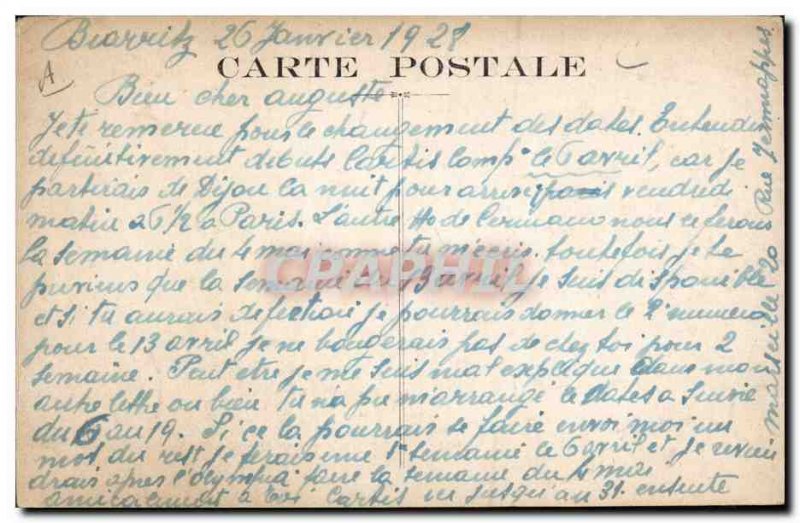 Biarritz 26 Janvier 1928
CARTE POSTALE
Bien cher auguste
Je te remercie pour le changement des dates. Entendu
définitivement débute Cartis Comp° le 6 avril, car je
partirais de Dijon la nuit pour arriver vendredi
matin a 6 1/2 a Paris. L'autre No de nous ferons
la semaine du 4 mai comme tu m'ecris. toutefois je te
previens que la semaine du 13 avril, je suis disponible
et si tu aurais defection je pourrais donner le 2e numero
pour le 13 avril je ne bougerais pas de chez toi pour 2
semaine. Peut etre je me suis mal expliqué dans mon
autre lettre ou bien tu n'a pu m'arrangé le dates a suivre
du 6 au 19. Si ce la pourrais se faire envoi moi un
mot, du rest je ferais une 1e semaine le 6 avril et je revien
drais apres l'Olympia faire la semaine du 4 mai
amicalement a toi Cartis jusqu'au 31. ensuite
marseille 20 Rue Jemmapes.
CPAPHIL